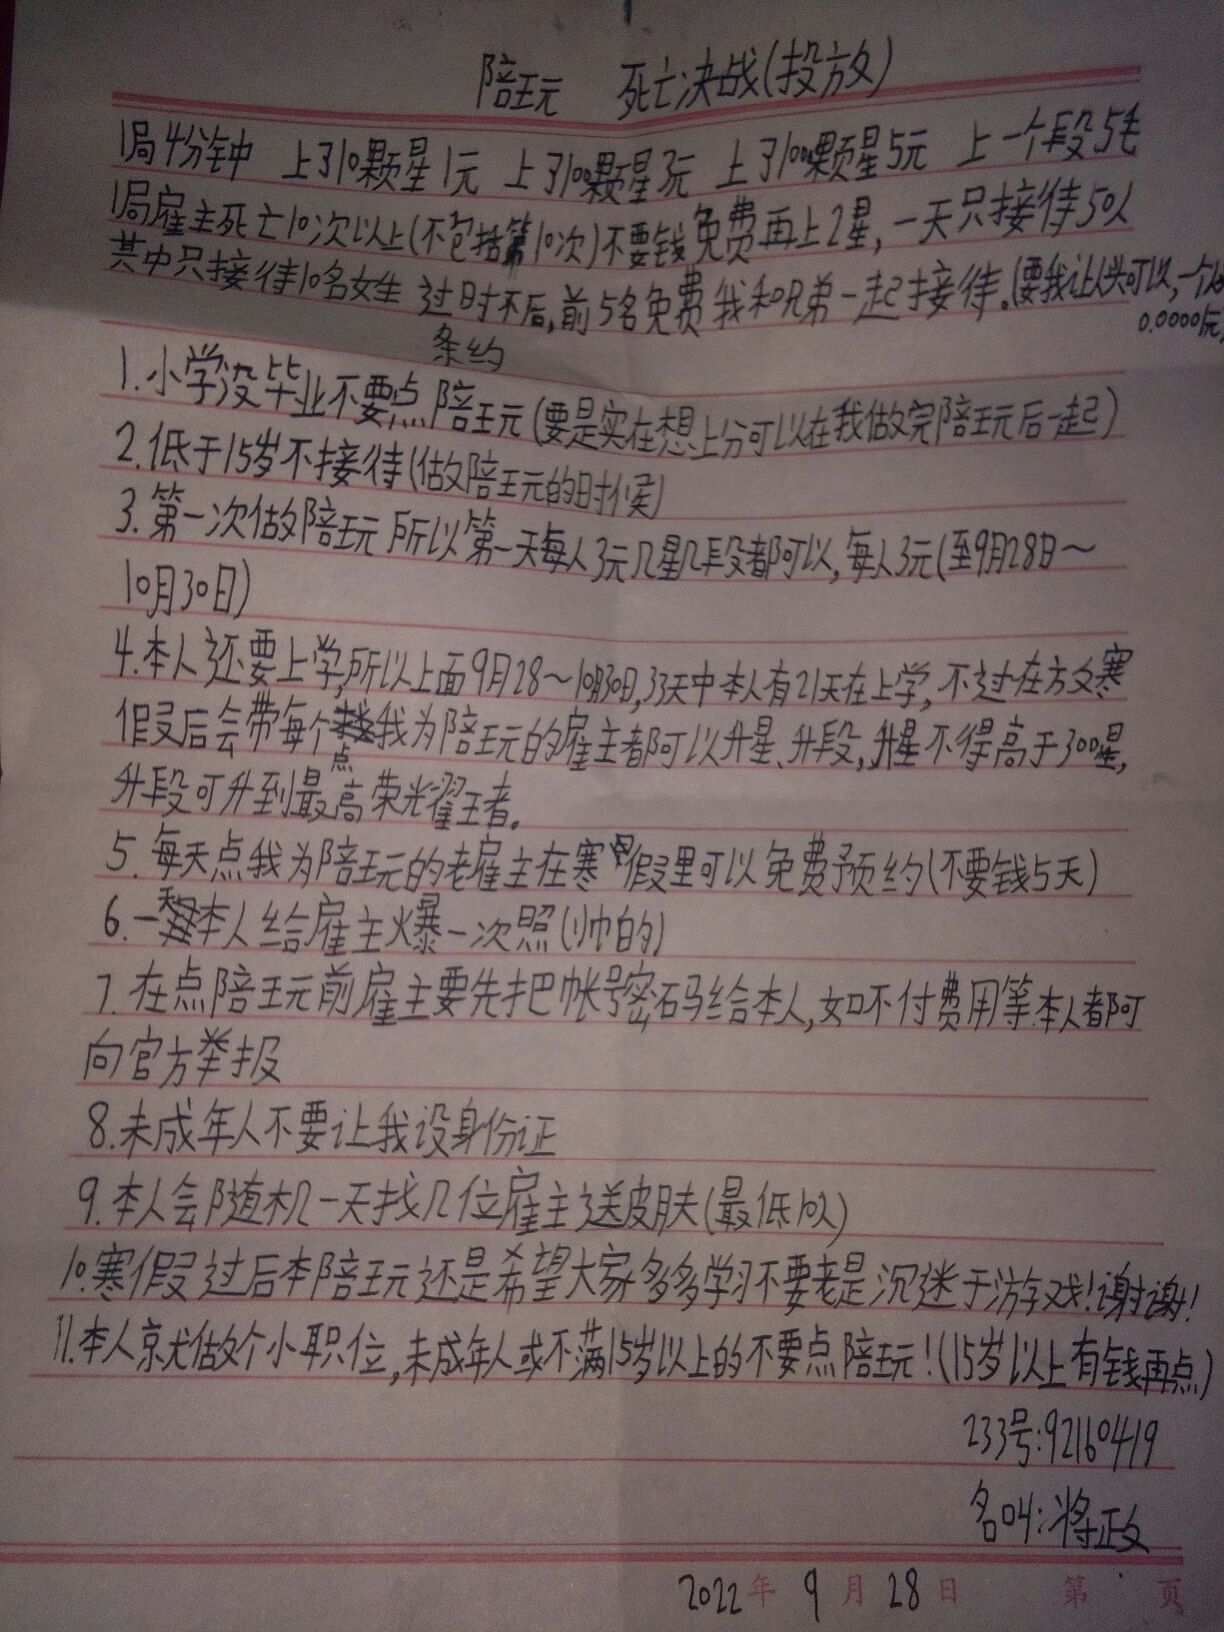 陪玩 死亡决战(投放)
1局4分钟 上了10颗星1元 上了100颗星3元 上了1000颗星5元 上一个段5毛
1局雇主死亡10次以上(不包括第10次)不要钱免费再上2星,一天只接待50人
其中只接待10名女生 过时不后,前5名免费我和兄弟一起接待。(要我让人头可以,一个人
0.00001元)
条约
1.小学没毕业不要点陪玩(要是实在想上分可以在我做完陪玩后一起)
2.低于15岁不接待(做陪玩的时候)
3.第一次做陪玩所以第一天每人3元几星几段都可以,每人3元(至9月28日~
10月30日)
4.本人还要上学,所以上面9月28~10月30日,33天中本人有21天在上学,不过在方文寒
假后会带每个点我为陪玩的雇主都可以升星、升段,升星不得高于300星,
升段可升到最高荣光耀王者。
5.每天点我为陪玩的老雇主在寒假里可以免费预约(不要钱5天)
6.一本人给雇主爆一次照(帅的)
7.在点陪玩前雇主要先把帐号密码给本人,如不付费用等本人都可
向官方举报
8.未成年人不要让我设身份证
9.本人会随机一天找几位雇主送皮肤(最低10人)
10.寒假过后本陪玩还是希望大家多多学习不要老是沉迷于游戏!谢谢!
11.本人就做个小职位,未成年人或不满15岁以上的不要点陪玩!(15岁以上有钱再点)
233号:92160419
名叫:将政
2022年9月28日 第 页